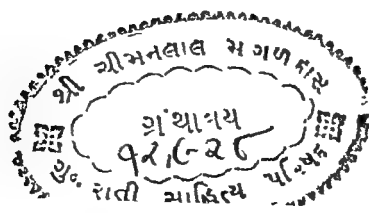 શ્રી ચીમનલાલ મગળદાસ
ગ્રંથાલય
ગુજરાતી સાહિત્ય પરિષદ